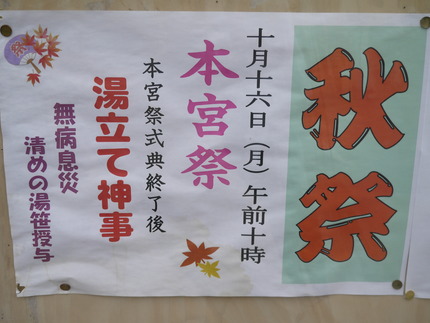 秋祭
十月十六日（月）午前十時
本宮祭
本宮祭式典終了後
湯立て神事
無病息災
清めの湯笹授与